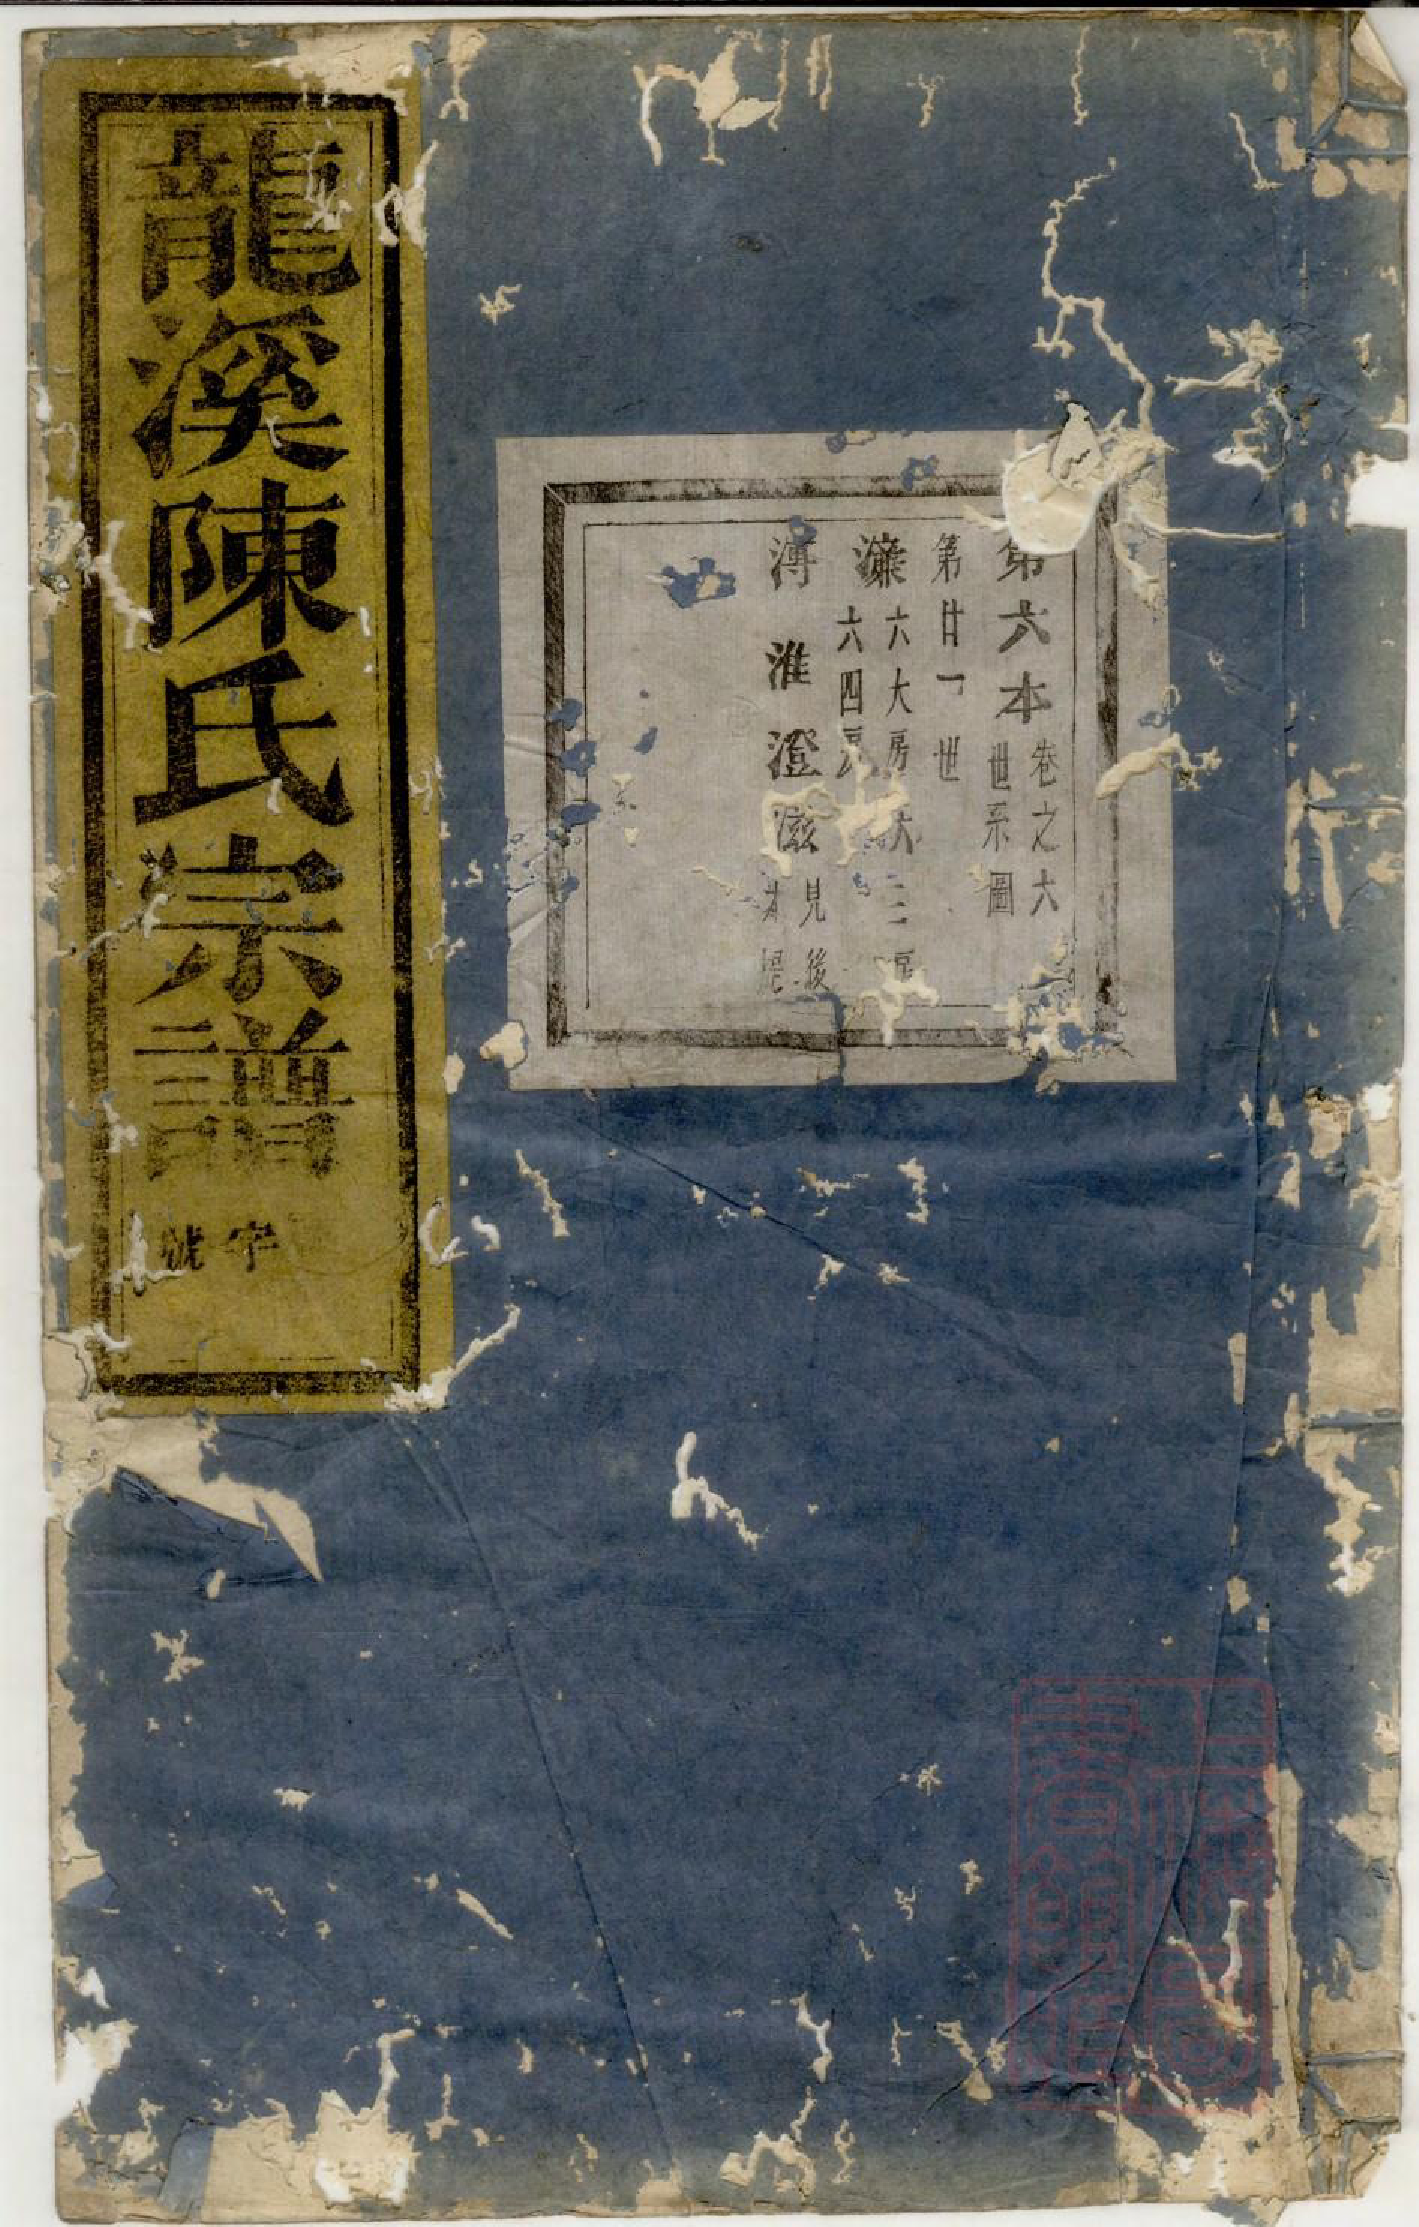 龍溪陳氏宗譜
字號
第六本
卷之六
世系圖
第廿一世
濂
六大房 六三房
六四房
溥淮澄滋
見後